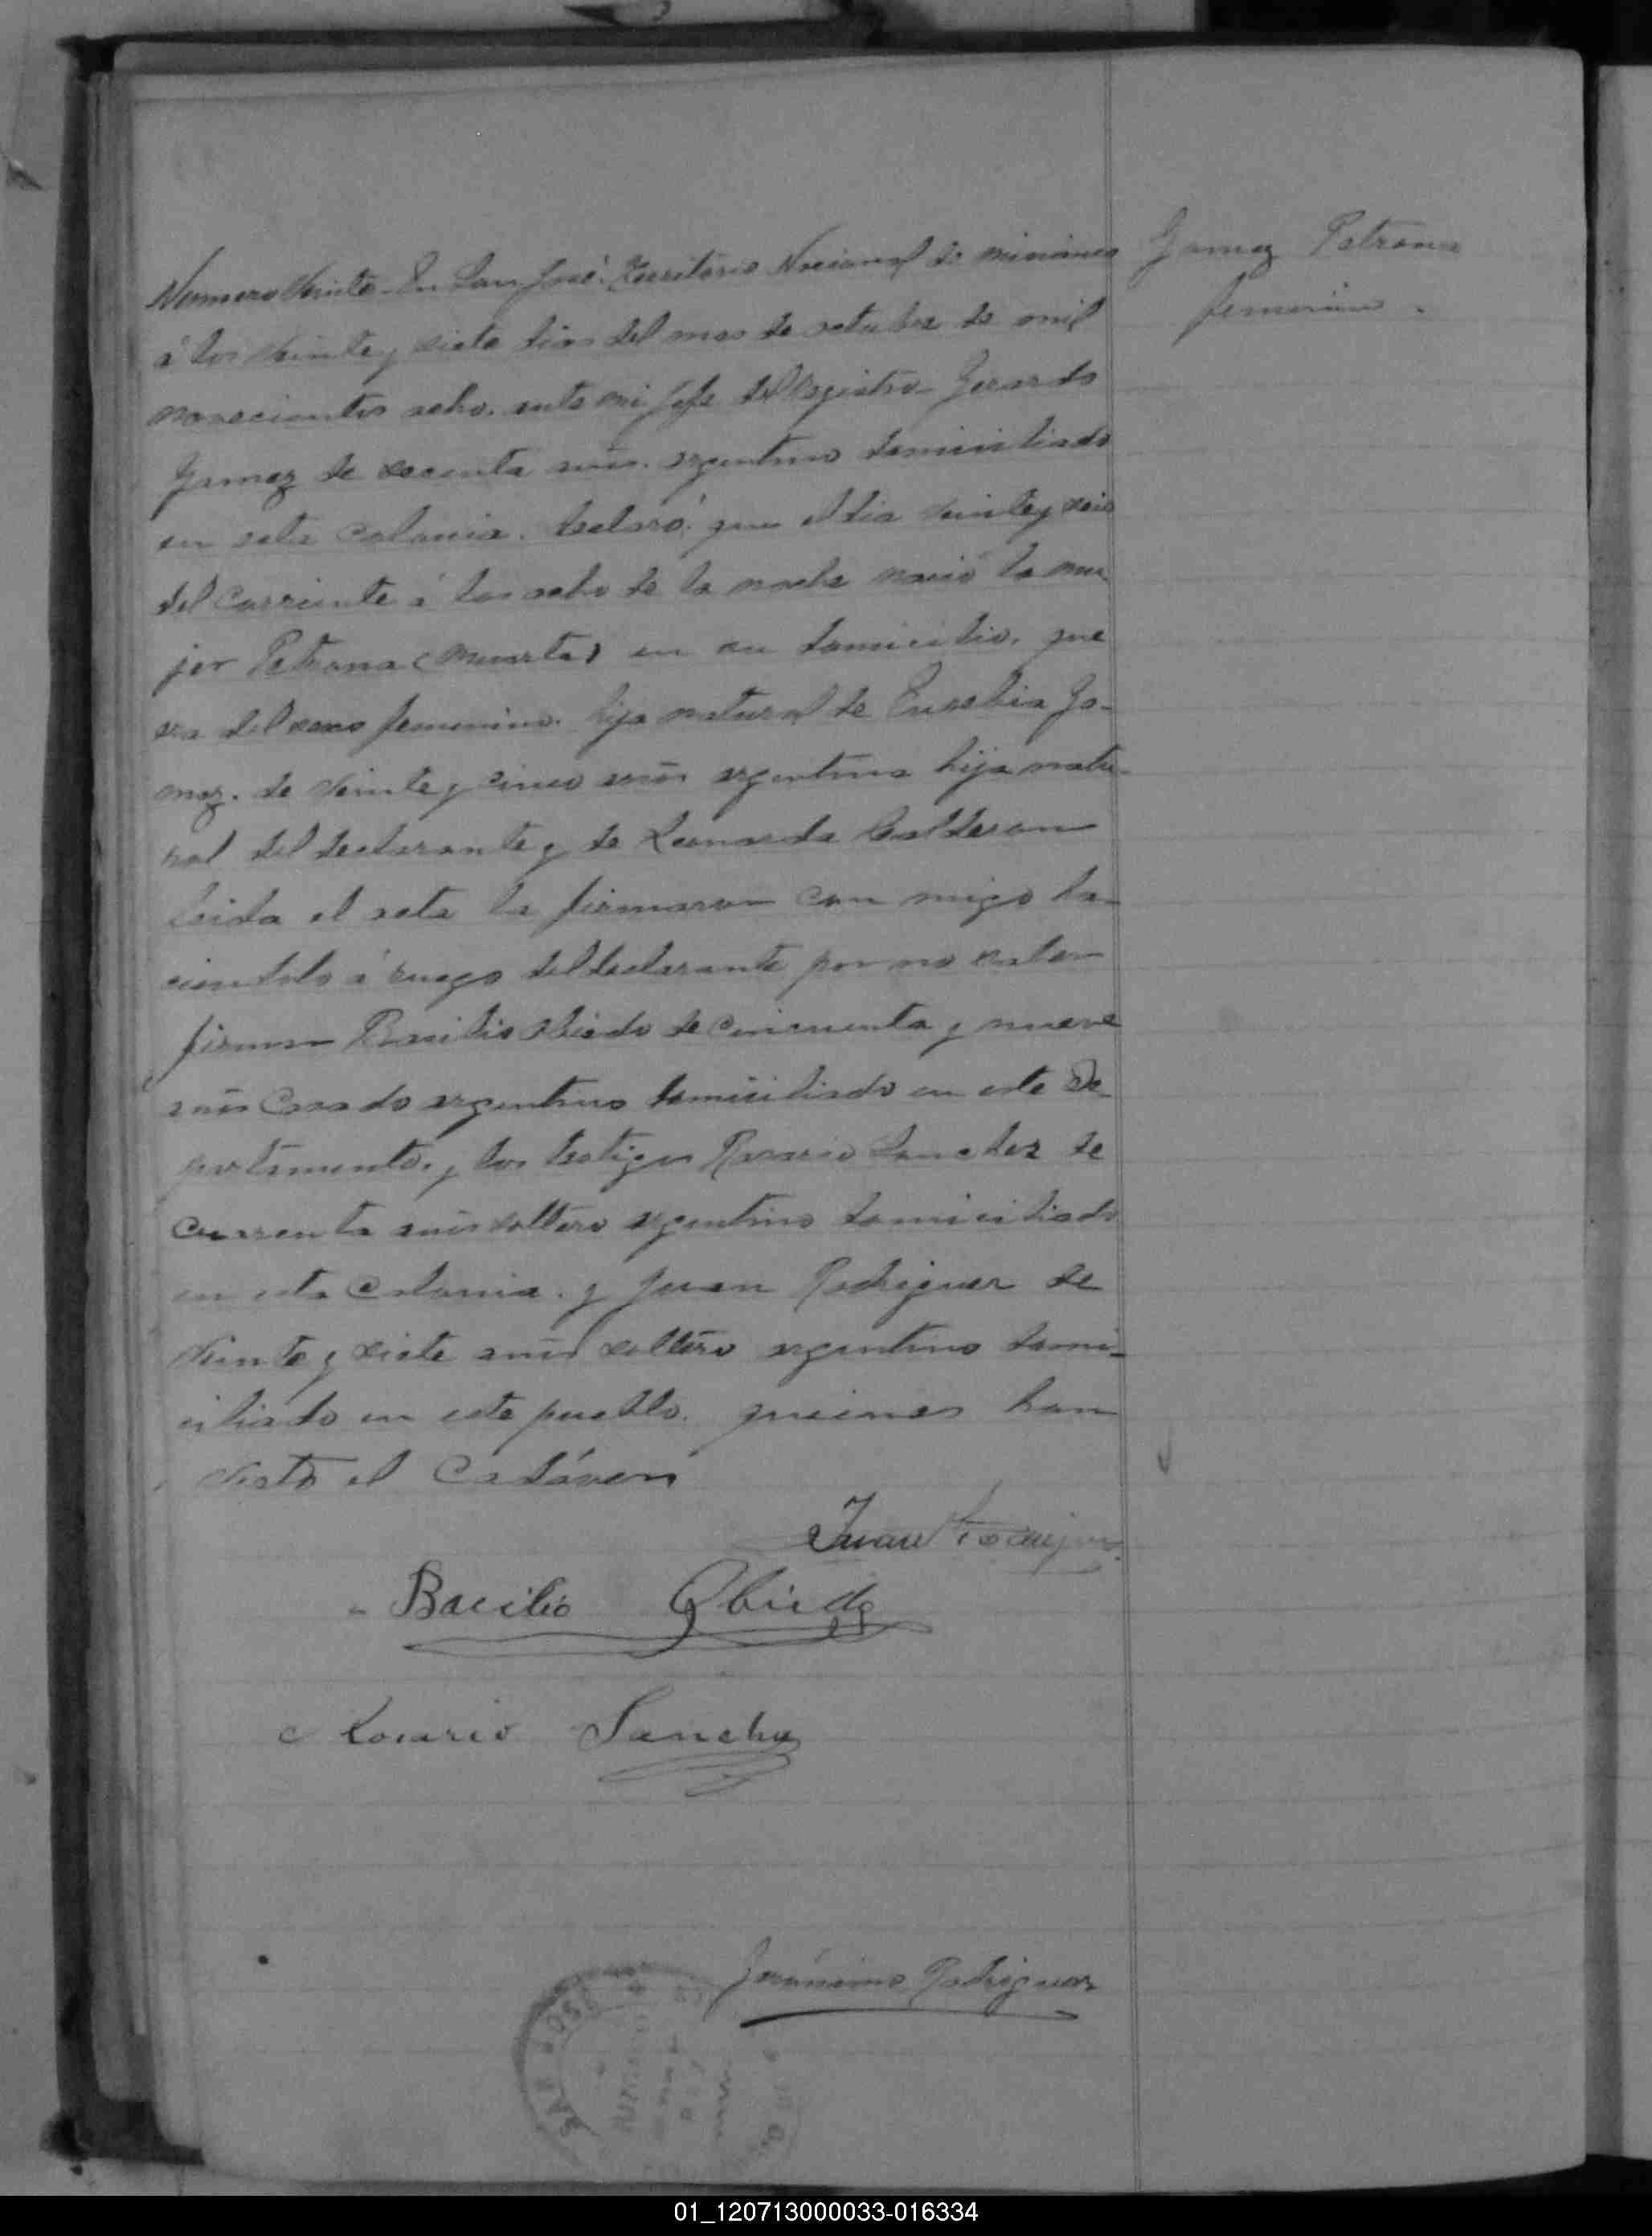 Gomez Petrona
femenino.
Numero Veinte. En San José. Territorio Nacional de misiones
á los veinte y siete dias del mes de octubre de mil
novecientos ocho. ante mi Jefe del Registro Gerardo
Gomez de secenta años. argentino domiciliado
en esta Colonia. declaró que el dia veinte y seis
del Corriente á las ocho de la noche nació la mu-
jer Petrona (muerta) en su domicilio, que
era del sexo femenino. hija natural de Eusebia Go-
mez. de veinte y cinco años argentina hija natu-
ral del declarante y de Leonarda Calderon
leida el acta la firmaron con migo ha-
ciendolo á ruego del declarante por no saber
firmar Basilio Obiedo de Cincuenta y nueve
años Casado argentino domiciliado en este De-
partamento. y los testigos Rosario Sanchez de
cuarenta años soltero argentino domiciliado
en esta Colonia. y Juan Rodriguez de
veinte y siete años soltero argentino domi-
ciliado en este pueblo. quienes han
visto el Cadáver
Juan Rodriguez
Bacilio Obiedo
Rosario Sanchez
Jerónimo Rodriguez
SAN JOSE
01_120713000033-016334